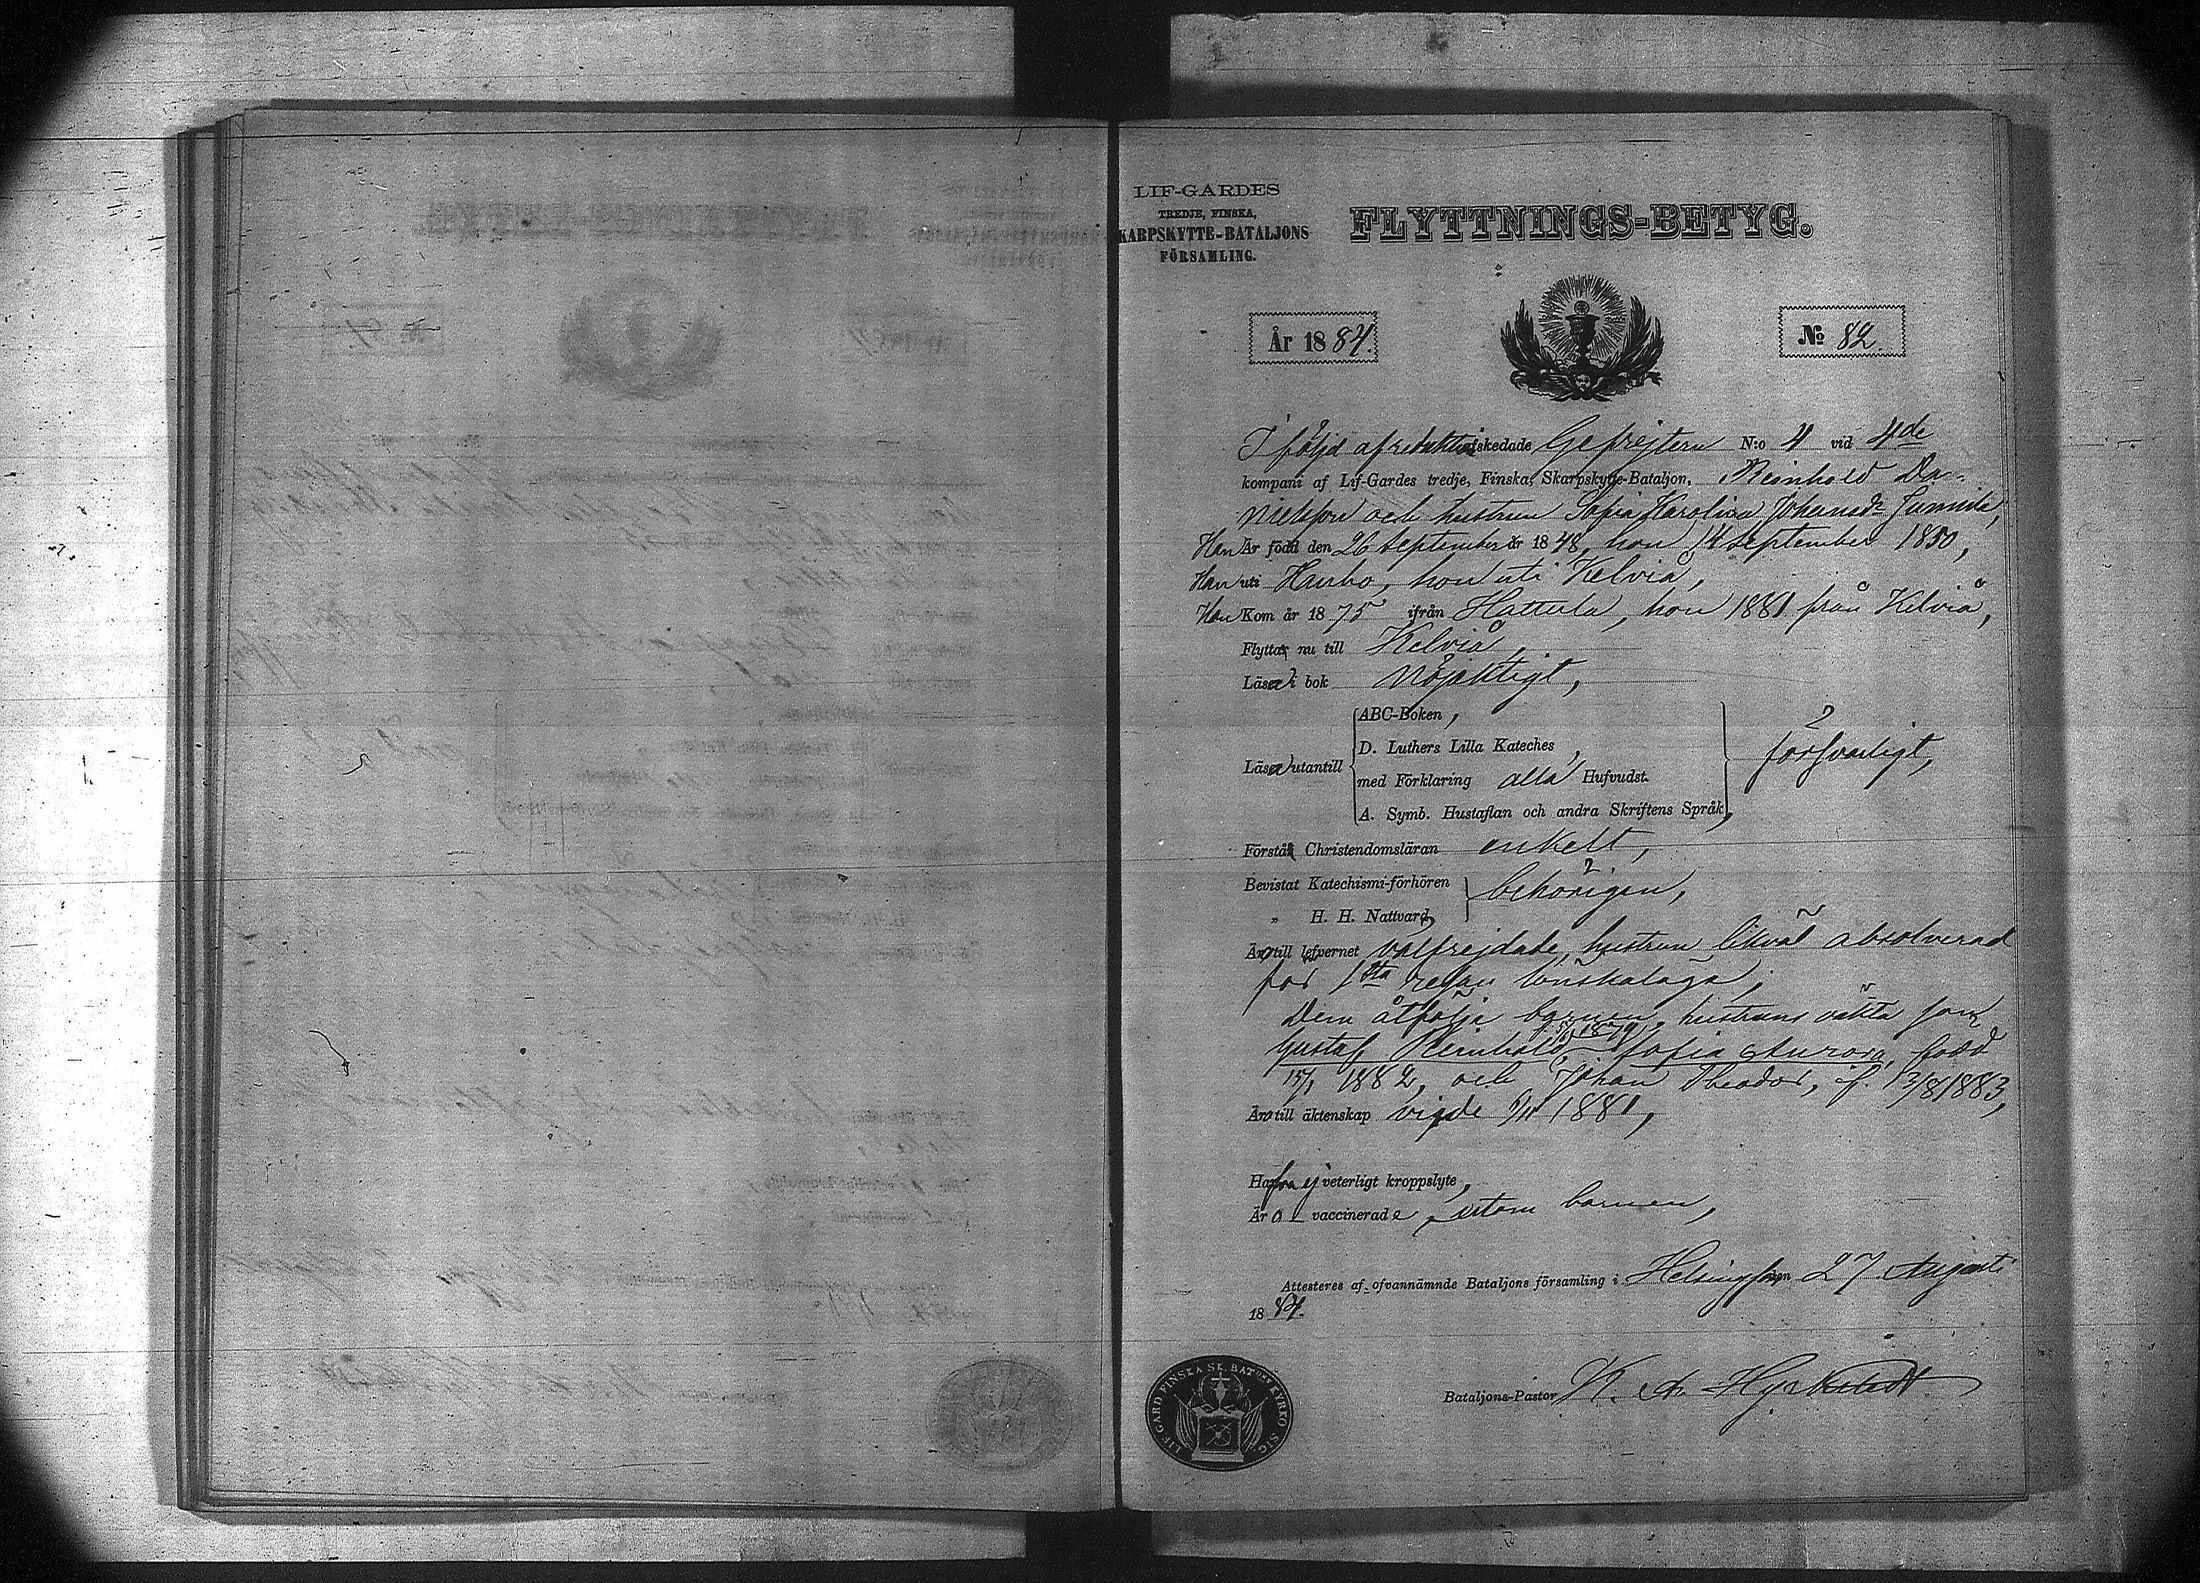 LIF-GARDES
TREDJE, FINSKA,
KARPSKYTTE-BATALJONS
FÖRSAMLING.
FLYTTNINGS-BETYG.
År 1884.
№ 82.
I följd af reduktion afskedade Gefrejtern N:o 4 vid 4de
kompani af Lif-Gardes tredje, Finska, Skarpskytte-Bataljon, Reinhold Da-
nielsson och hustrun Sofia Karolina Johansdr
Han Är född den 26 September år 1848, hon 14 September 1850,
Han uti Hauho, hon uti Kelviå,
Han Kom år 1875 ifrån Hattula, hon 1881 från Kelviå,
Flytta nu till Kelviå,
Läsa i bok Nöjaktigt,
Läsa utantill
ABC-Boken,
D. Luthers Lilla Kateches,
med Förklaring alla Hufvudst.
A. Symb. Hustaflan och andra Skriftens Språk,
försvarligt,
Förstå Christendomsläran enkelt,
Bevistat Katechismi-förhören
„ H. H. Nattvard,
behörigen,
Äro till lefvernet välfrejdade, hustrun likväl absolverad
för 1sta resan lönskaläge,
Dem åtfölja barnen, hustruns oäkta son
Gustaf Reinhold, 1879, Sofia Aurora, född
15/1 1882, och Johan Theodor, f. 13/8 1883,
Äro till äktenskap vigde 6/11 1881,
Hafva ej veterligt kroppslyte,
Äro vaccinerade, utom barnen,
Attesteres af ofvannämnde Bataljons församling i Helsingfors 27 Augusti
1884.
Bataljons-Pastor K. A. Hyrkstedt
LIF GARD FINSKA SK. BATONS KYRKO SIG.